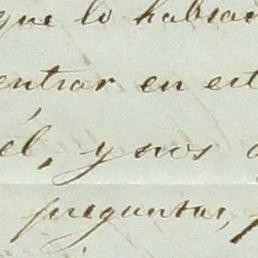 que lo habian
entrar en est
él, y nos
preguntar,